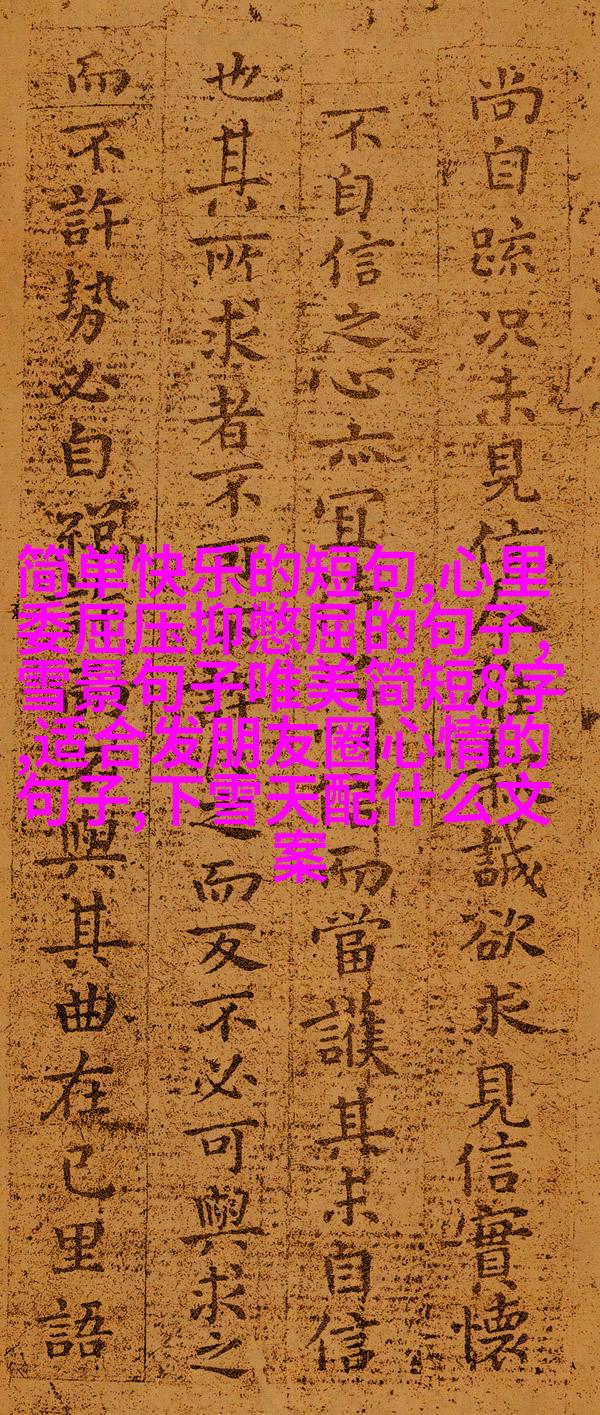 尚自疏况未見信人誠欲求見信實懷
不自信之心亦宜而當護其未自信
也其所求者不可之而反不必可與求之
而不許勢必自與其曲在己里語
简单快乐的短句,心里
委屈压抑憋屈的句子,
雪景句子唯美简短8字
,适合发朋友圈心情的
句子,下雪天配什么文
案